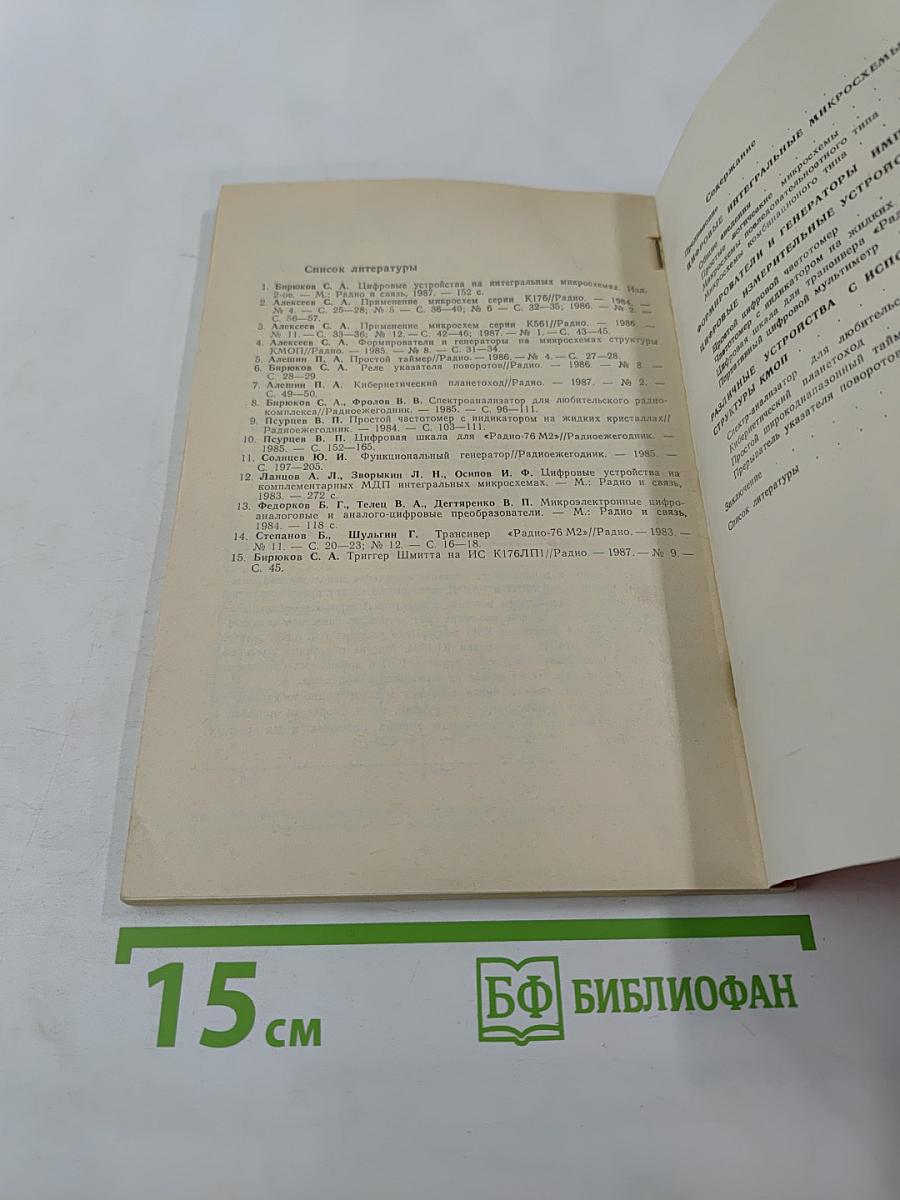 Список литературы
1. Бирюков С. А. Цифровые устройства на интегральных микросхемах. Изд.
2-ое. — М.: Радио и связь, 1987. — 152 с.
2. Алексеев С. А. Применение микросхем серии К176//Радио. — 1984. —
№ 4. — С. 25—28; № 5 — С. 36—40; № 6 — С. 32—35; 1986. — № 2. —
С. 56—57.
3. Алексеев С. А. Применение микросхем серии К561//Радио. — 1986. —
№ 11. — С. 33—36; № 12. — С. 42—46; 1987. — № 1. — С. 43—45.
4. Алексеев С. А. Формирователи и генераторы на микросхемах структуры
КМОП//Радио. — 1985. — № 8. — С. 31—34.
5. Алешин П. А. Простой таймер//Радио. — 1986. — № 4. — С. 27—28.
6. Бирюков С. А. Реле указателя поворотов//Радио. — 1986. — № 8. —
С. 28—29.
7. Алешин П. А. Кибернетический планетоход//Радио. — 1987. — № 2. —
С. 49—50.
8. Бирюков С. А., Фролов В. В. Спектроанализатор для любительского радио-
комплекса//Радиоежегодник. — 1985. — С. 96—111.
9. Псурцев В. П. Простой частотомер с индикатором на жидких кристаллах//
Радиоежегодник. — 1984. — С. 103—111.
10. Псурцев В. П. Цифровая шкала для «Радио-76 М2»//Радиоежегодник. —
1985. — С. 152—165.
11. Солнцев Ю. И. Функциональный генератор//Радиоежегодник. — 1985. —
С. 197—205.
12. Ланцов А. Л., Зворыкин Л. Н., Осипов И. Ф. Цифровые устройства на
комплементарных МДП интегральных микросхемах. — М.: Радио и связь,
1983. — 272 с.
13. Федорков Б. Г., Телец В. А., Дегтяренко В. П. Микроэлектронные цифро-
аналоговые и аналого-цифровые преобразователи. — М.: Радио и связь,
1984. — 118 с.
14. Степанов Б., Шульгин Г. Трансивер «Радио-76 М2»//Радио. — 1983. —
№ 11. — С. 20—23; № 12. — С. 16—18.
15. Бирюков С. А. Триггер Шмитта на ИС К176ЛП1//Радио. — 1987. — № 9. —
С. 45.
Содержание
Предисловие
ЦИФРОВЫЕ ИНТЕГРАЛЬНЫЕ МИКРОСХЕМЫ
Общие сведения
Простые логические микросхемы
Микросхемы последовательностного типа
Микросхемы комбинационного типа
ФОРМИРОВАТЕЛИ И ГЕНЕРАТОРЫ ИМП
ЦИФРОВЫЕ ИЗМЕРИТЕЛЬНЫЕ УСТРОЙС
Простой цифровой частотомер
Частотомер с индикатором на жидких
Цифровая шкала для трансивера «Рад
Портативный цифровой мультиметр
РАЗЛИЧНЫЕ УСТРОЙСТВА С ИСПО
СТРУКТУРЫ КМОП
Спектроанализатор для любительс
Кибернетический планетоход
Простой широкодиапазонный тайм
Прерыватель указателя поворотов
Заключение
Список литературы
15 см
БФ БИБЛИОФАН